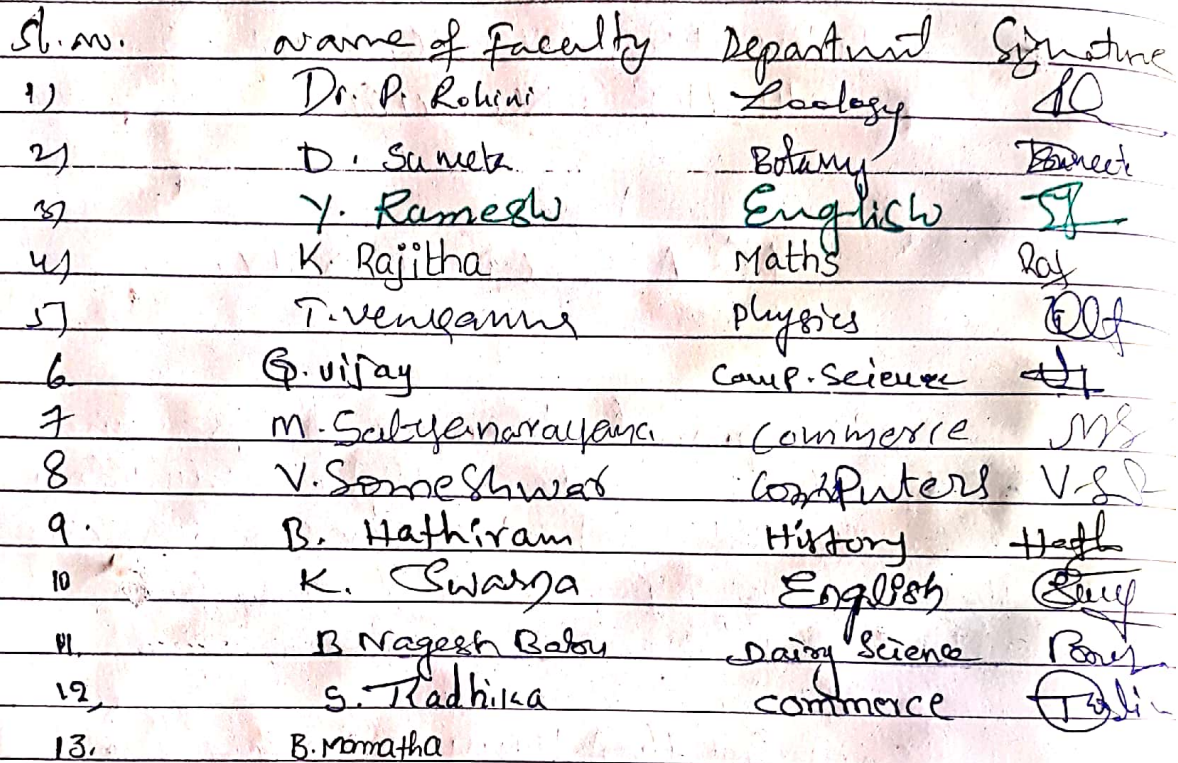 Sl. no. Name of Faculty Department Signature
1) Dr. P. Rohini Zoology
2) D. Suneeta Botany
3) Y. Ramesh English
4) K. Rajitha Maths Raj
5) T. Venganna physics
6 G. vijay Comp. Science
7 M. Satyanarayana Commerce MS
8 V. Someshwar Computers
9. B. Hathiram History Hath
10 K. Swarna English
11. B Nagesh Babu Dairy Science
12, S. Radhika commerce
13. B. Mamatha